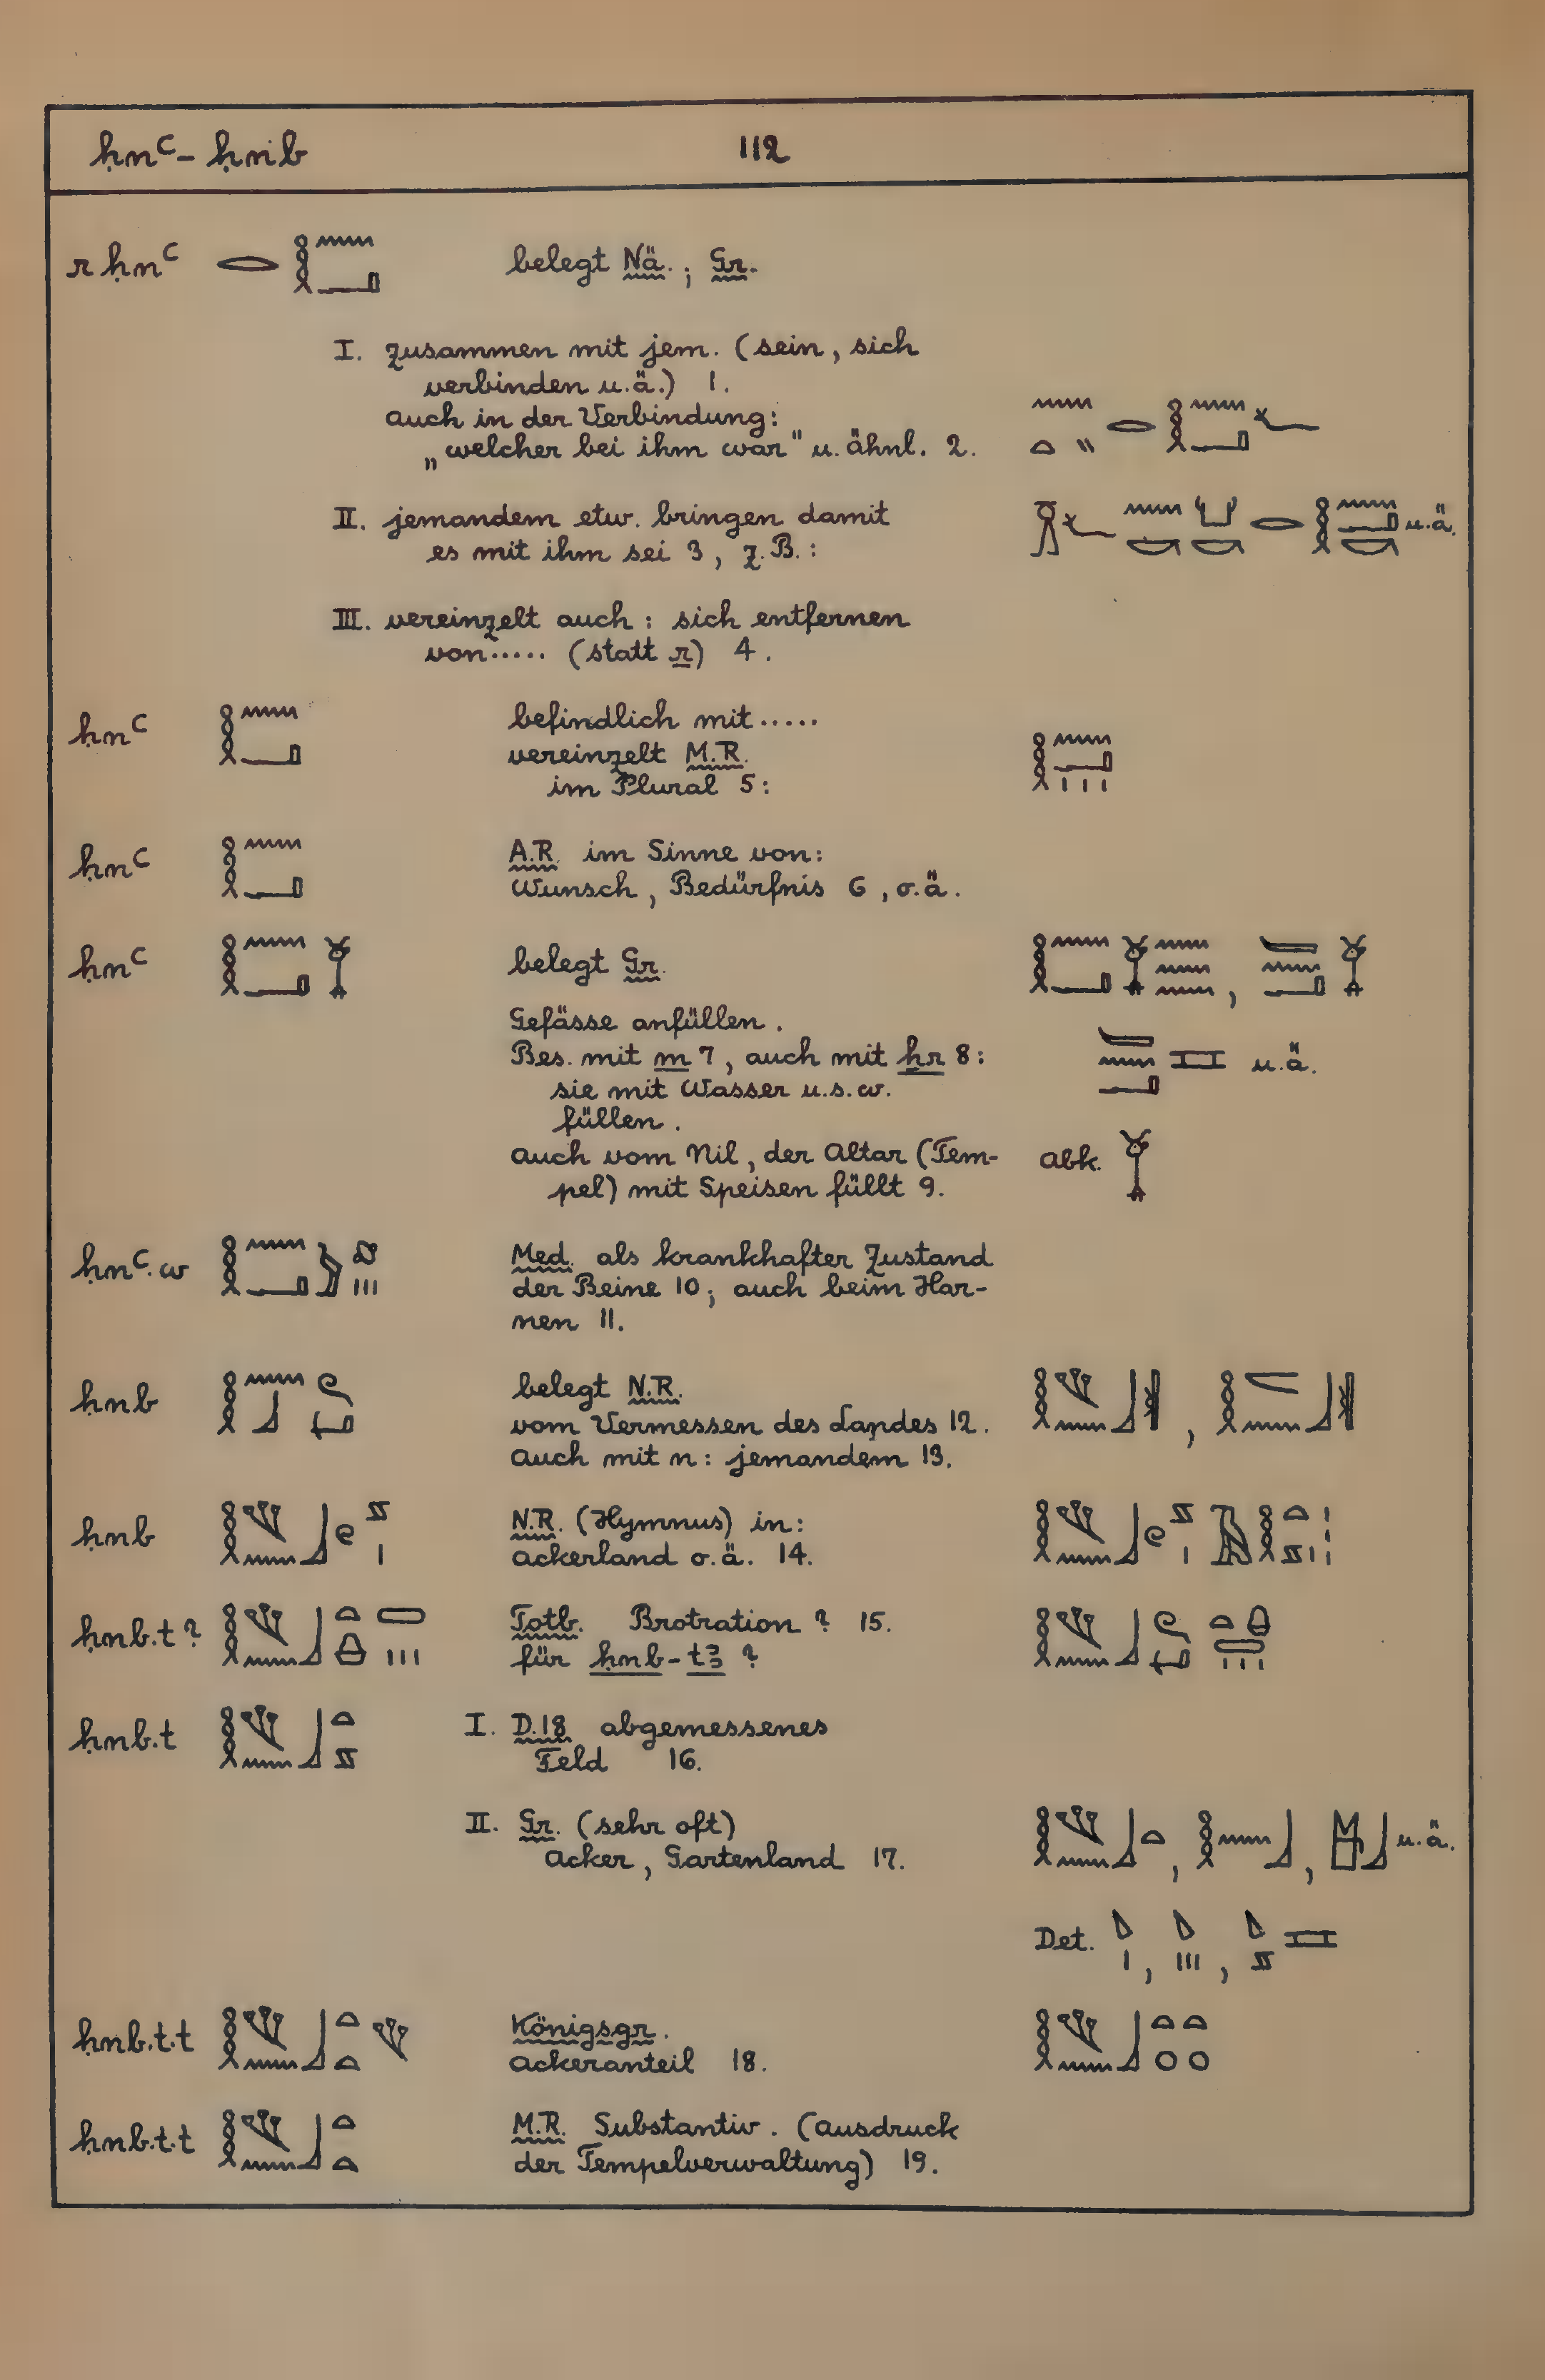 ḥnꜥ - ḥnb 112
r ḥnꜥ belegt Nä.; Gr.
I. zusammen mit jem. (sein, sich
verbinden u.ä.) 1.
auch in der Verbindung:
„welcher bei ihm war" u. ähnl. 2.
II. jemandem etw. bringen damit u.ä.
es mit ihm sei 3, z.B.:
III. vereinzelt auch: sich entfernen
von..... (statt r) 4.
ḥnꜥ befindlich mit.....
vereinzelt M.R.
im Plural 5:
ḥnꜥ A.R. im Sinne von:
Wunsch, Bedürfnis 6, o.ä.
ḥnꜥ belegt Gr.
Gefässe anfüllen.
Bes. mit m 7, auch mit ẖr 8: u.ä.
sie mit Wasser u.s.w.
füllen.
auch vom Nil, der Altar (Tem- Abk.
pel) mit Speisen füllt 9.
ḥnꜥ.w Med. als krankhafter Zustand
der Beine 10; auch beim Har-
nen 11.
ḥnb belegt N.R.
vom Vermessen des Landes 12.
Auch mit n: jemandem 13.
ḥnb N.R. (Hymnus) in:
Ackerland o.ä. 14.
ḥnb.t? Totb. Brotration? 15.
für ḥnb-tꜣ ?
ḥnb.t I. D.18 abgemessenes
Feld 16.
II. Gr. (sehr oft) u.ä.
Acker, Gartenland 17.
Det.
ḥnb.t.t Königsgr.
Ackeranteil 18.
ḥnb.t.t M.R. Substantiv. (Ausdruck
der Tempelverwaltung) 19.